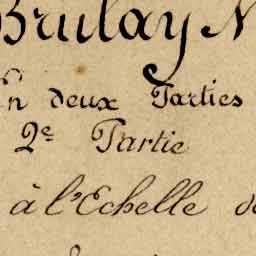 Brulay N
En deux Parties
2e Partie
à l'Echelle de